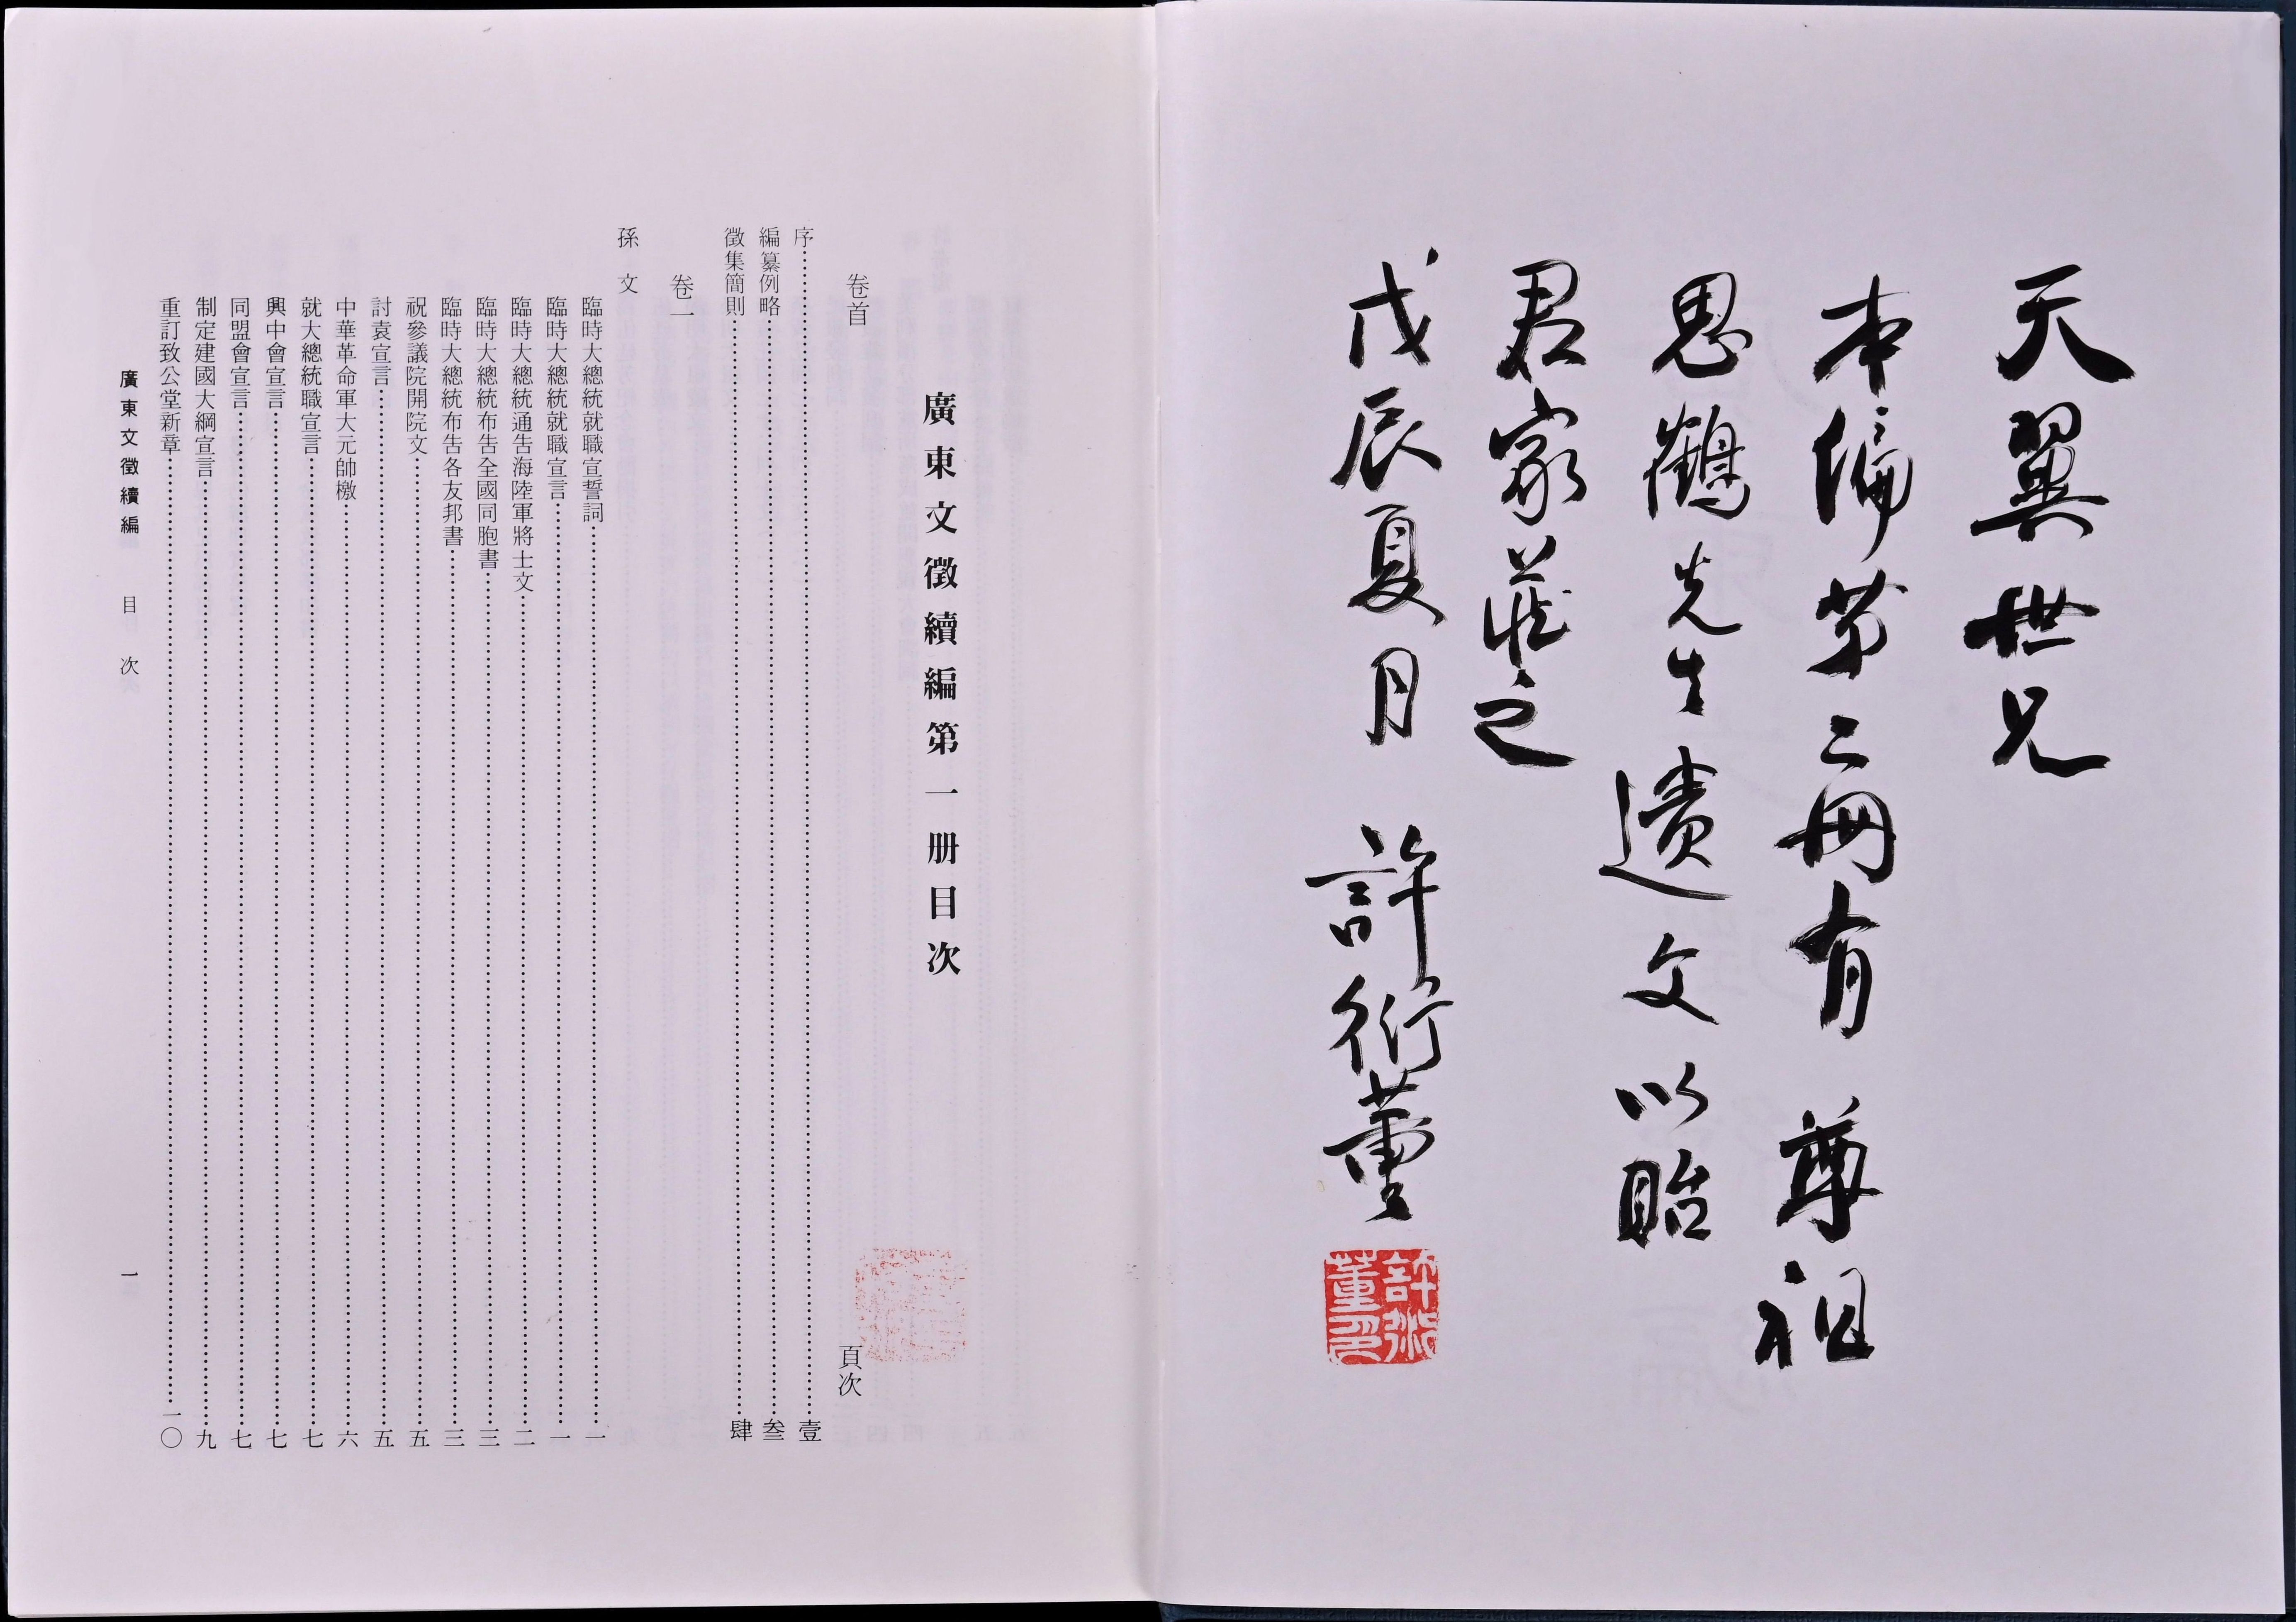 天翼世兄
本编第二冊有 尊祖
思鶴先生遺文以貽
君家藏之
戊辰夏月 許衍董
許衍董印
廣東文徵續編第一册目次
卷首
頁次
序……壹
編纂例略……叁
徵集簡則……肆
卷一
孫 文
臨時大總統就職宣誓詞……一
臨時大總統就職宣言……一
臨時大總統通告海陸軍將士文……二
臨時大總統布告全國同胞書……三
臨時大總統布告各友邦書……三
祝參議院開院文……五
討袁宣言……五
中華革命軍大元帥檄……六
就大總統職宣言……七
興中會宣言……七
同盟會宣言……七
制定建國大綱宣言……九
重訂致公堂新章……一〇
廣東文徵續編 目次 一